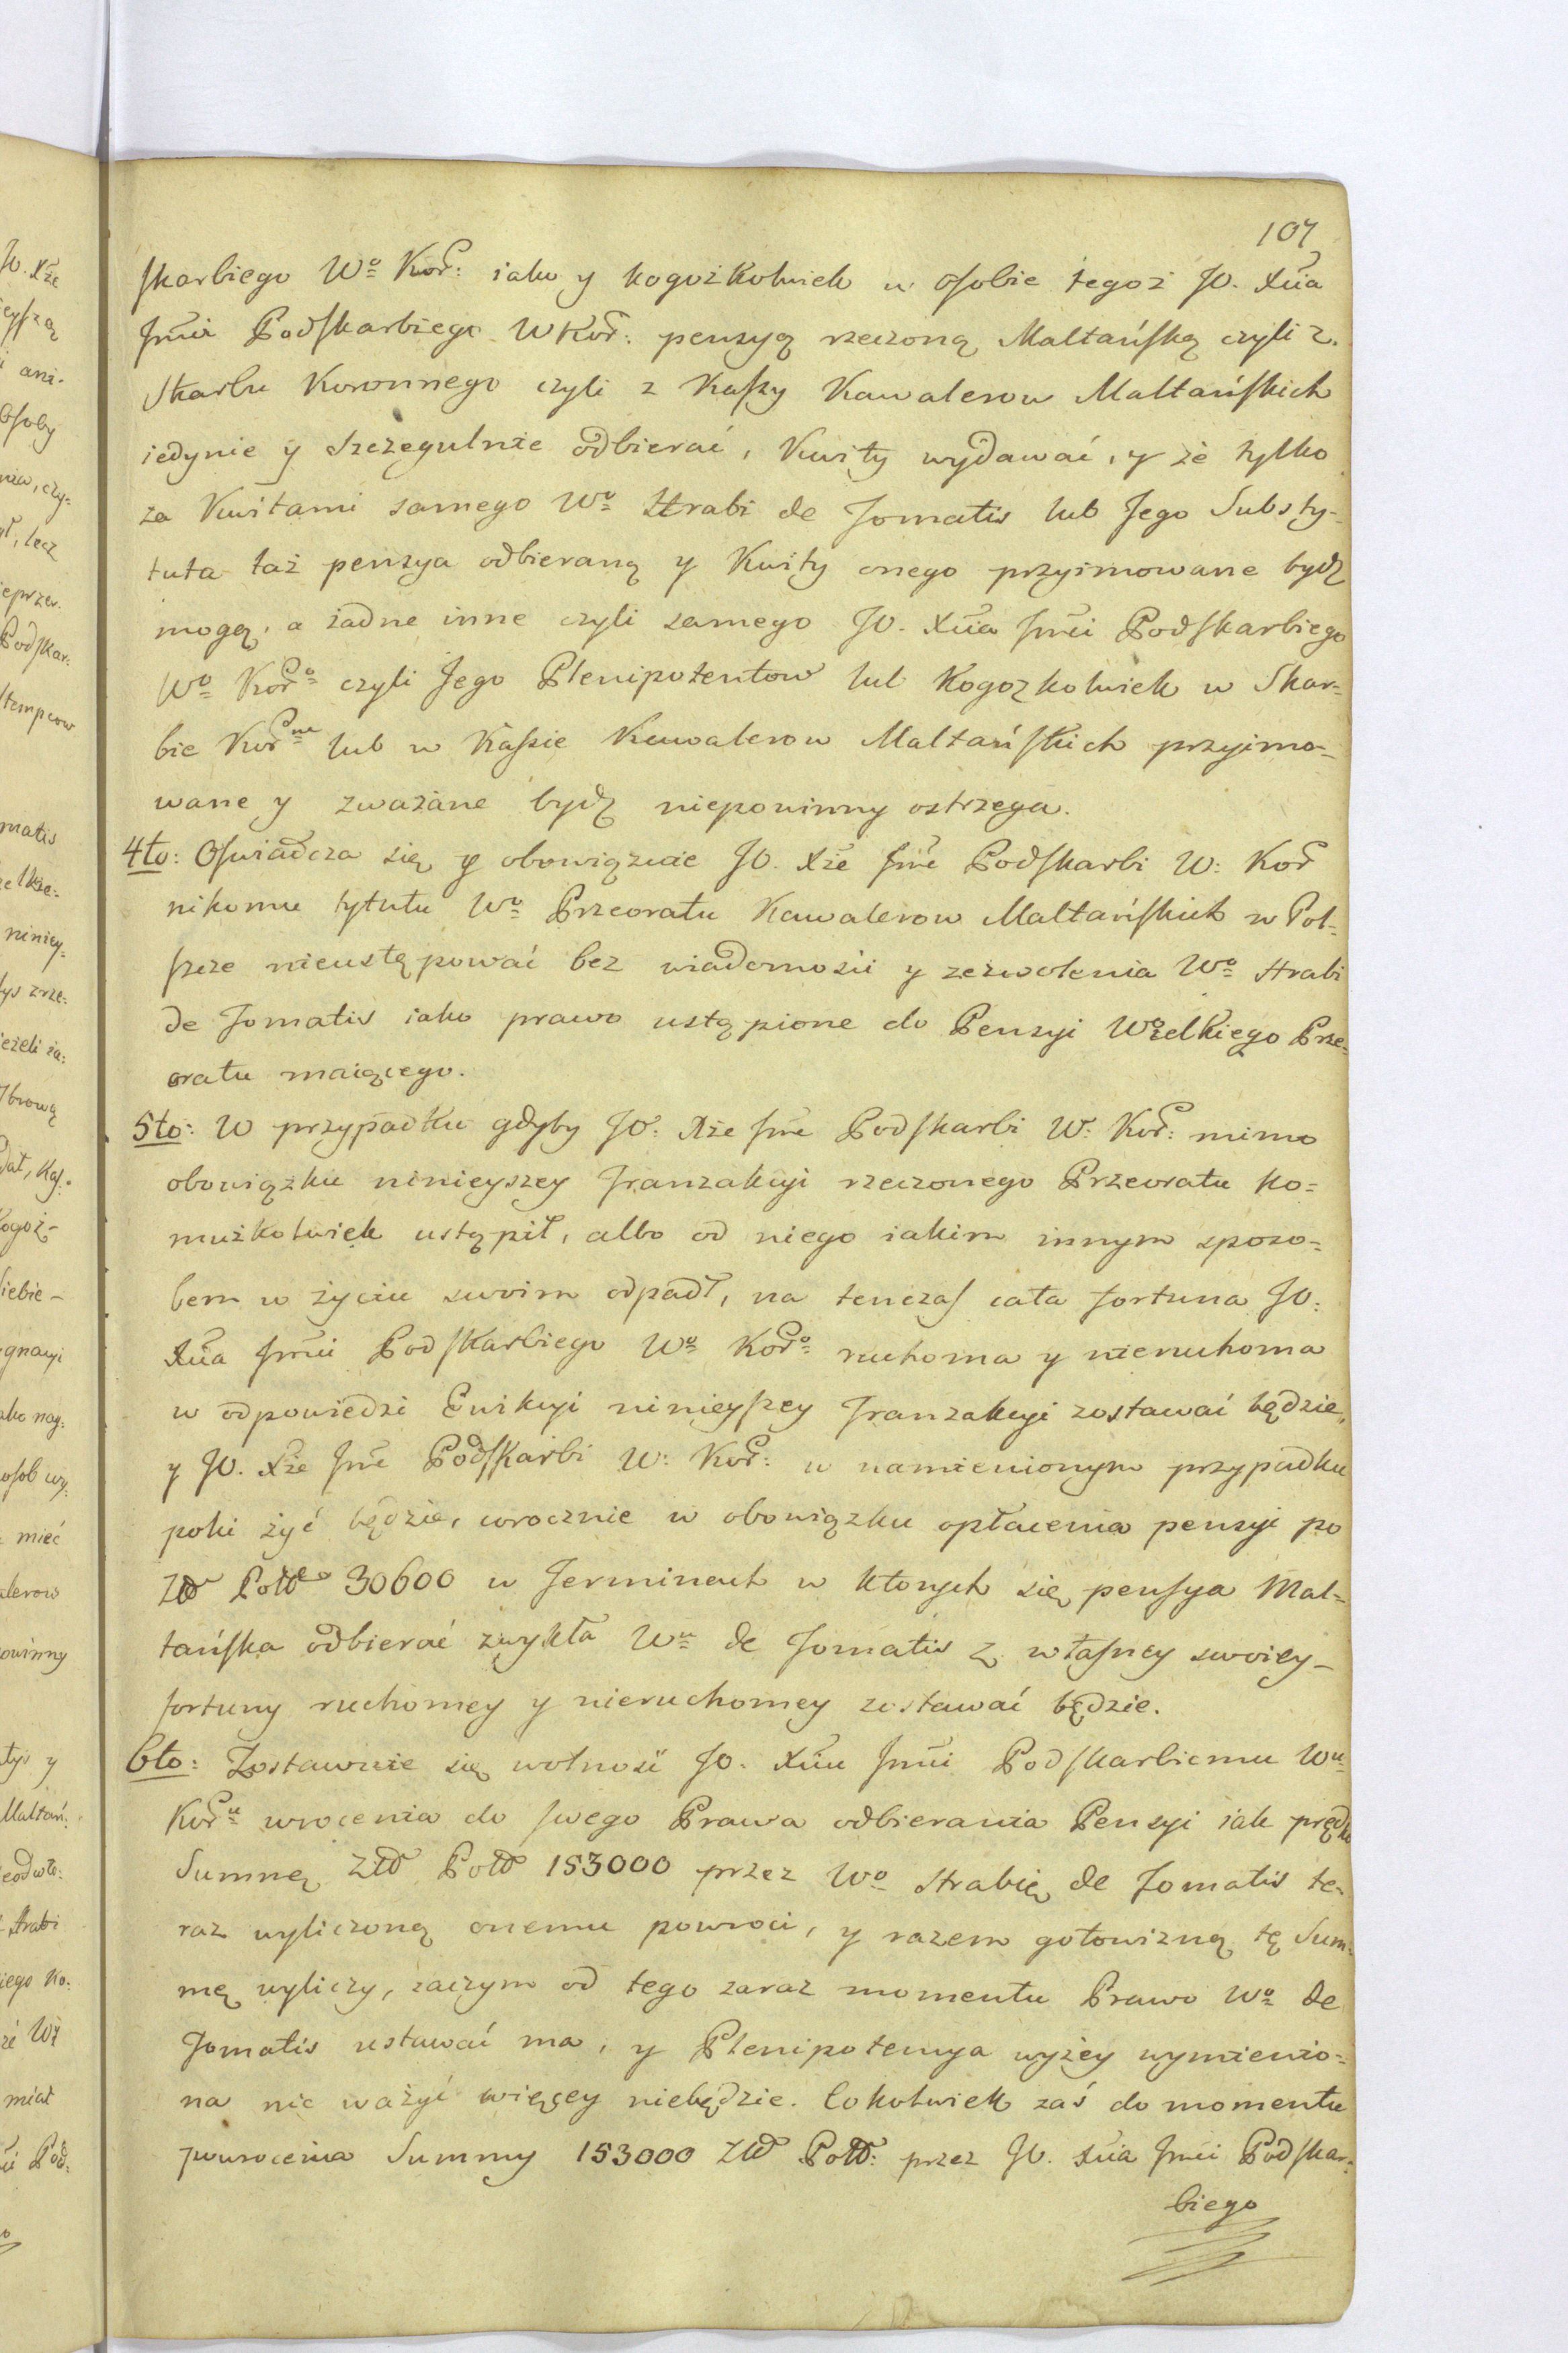 107
skarbiego Wº Kor: iako y kogożkolwiek w osobie tegoż JO. Xcia
Jmci Podskarbiego W Kor: pensyą rzeczoną Maltańską czyli z
Skarbu Koronnego czyli z Kassy Kawalerow Maltańskich
iedynie y szczegulnie odbierać, Kwity wydawać, y że tylko
za Kwitami samego Wº Hrabi de Tomatis lub Jego Substy-
tuta taż pensya odbieraną y Kwity onego przyimowane bydz
mogą, a żadne inne czyli samego JO. Xcia Jmci Podskarbiego
Wº Korº czyli Jego Plenipotentow lub Kogozkolwiek w Skar-
bie Kor lub w Kassie Kawalerow Maltańskich przyimo-
wane y zważane bydz niepowinny ostrzega.
4to: Oswiadcza się y obowiązuie JO. Xże Jmć Podskarbi W: Kor
nikomu tytułu Wº Przeoratu Kawalerow Maltańskich w Pol-
szcze nieustępować bez wiadomości y zezwolenia Wº Hrabi
de Tomatis iako prawo ustąpione do Pensyi Wielkiego Prze-
oratu maiącego.
5to: W przypadku gdyby JO: Xże Jmć Podskarbi W: Kor: mimo
obowiązku ninieyszey Tranzakcyi rzeczonego Przeoratu ko-
mużkolwiek ustąpił, albo od niego iakim innym sposo-
bem w życiu swoim odpadł, na tenczas cała fortuna JO:
Xcia Jmci Podskarbiego Wº Korº ruchoma y nieruchoma
w odpowiedzi Ewikcyi ninieyszey Tranzakcyi zostawać będzie,
y JO. Xże Jmć Podskarbi W: Kor: w namienionym przypadku
poki żyć będzie, corocznie w obowiązku opłacenia pensyi po
Zło Pol 30600 w Terminach w ktorych się pensya Mal-
tańska odbierać zwykła Wu de Tomatis z własney swoiey-
fortuny ruchomey y nieruchomey zostawać będzie.
6to: Zostawuie się wolność JO. Xciu Jmci Podskarbiemu Wu
Koru wrocenia do swego Prawa odbierania Pensyi iak prędko
Summę Złł Poll 153000 przez Wº Hrabię de Tomatis te-
raz wyliczoną onemu powroci, y razem gotowizną tę Sum-
mę wyliczy, zaczym od tego zaraz momentu Prawo Wº de
Tomatis ustawać ma, y Plenipotencya wyżey wymienio-
na nic ważyć więcey niebędzie. Cokolwiek zaś do momentu
powrocenia Summy 153000 Złł Poll: przez JO. Xcia Jmci Podskar-
biego